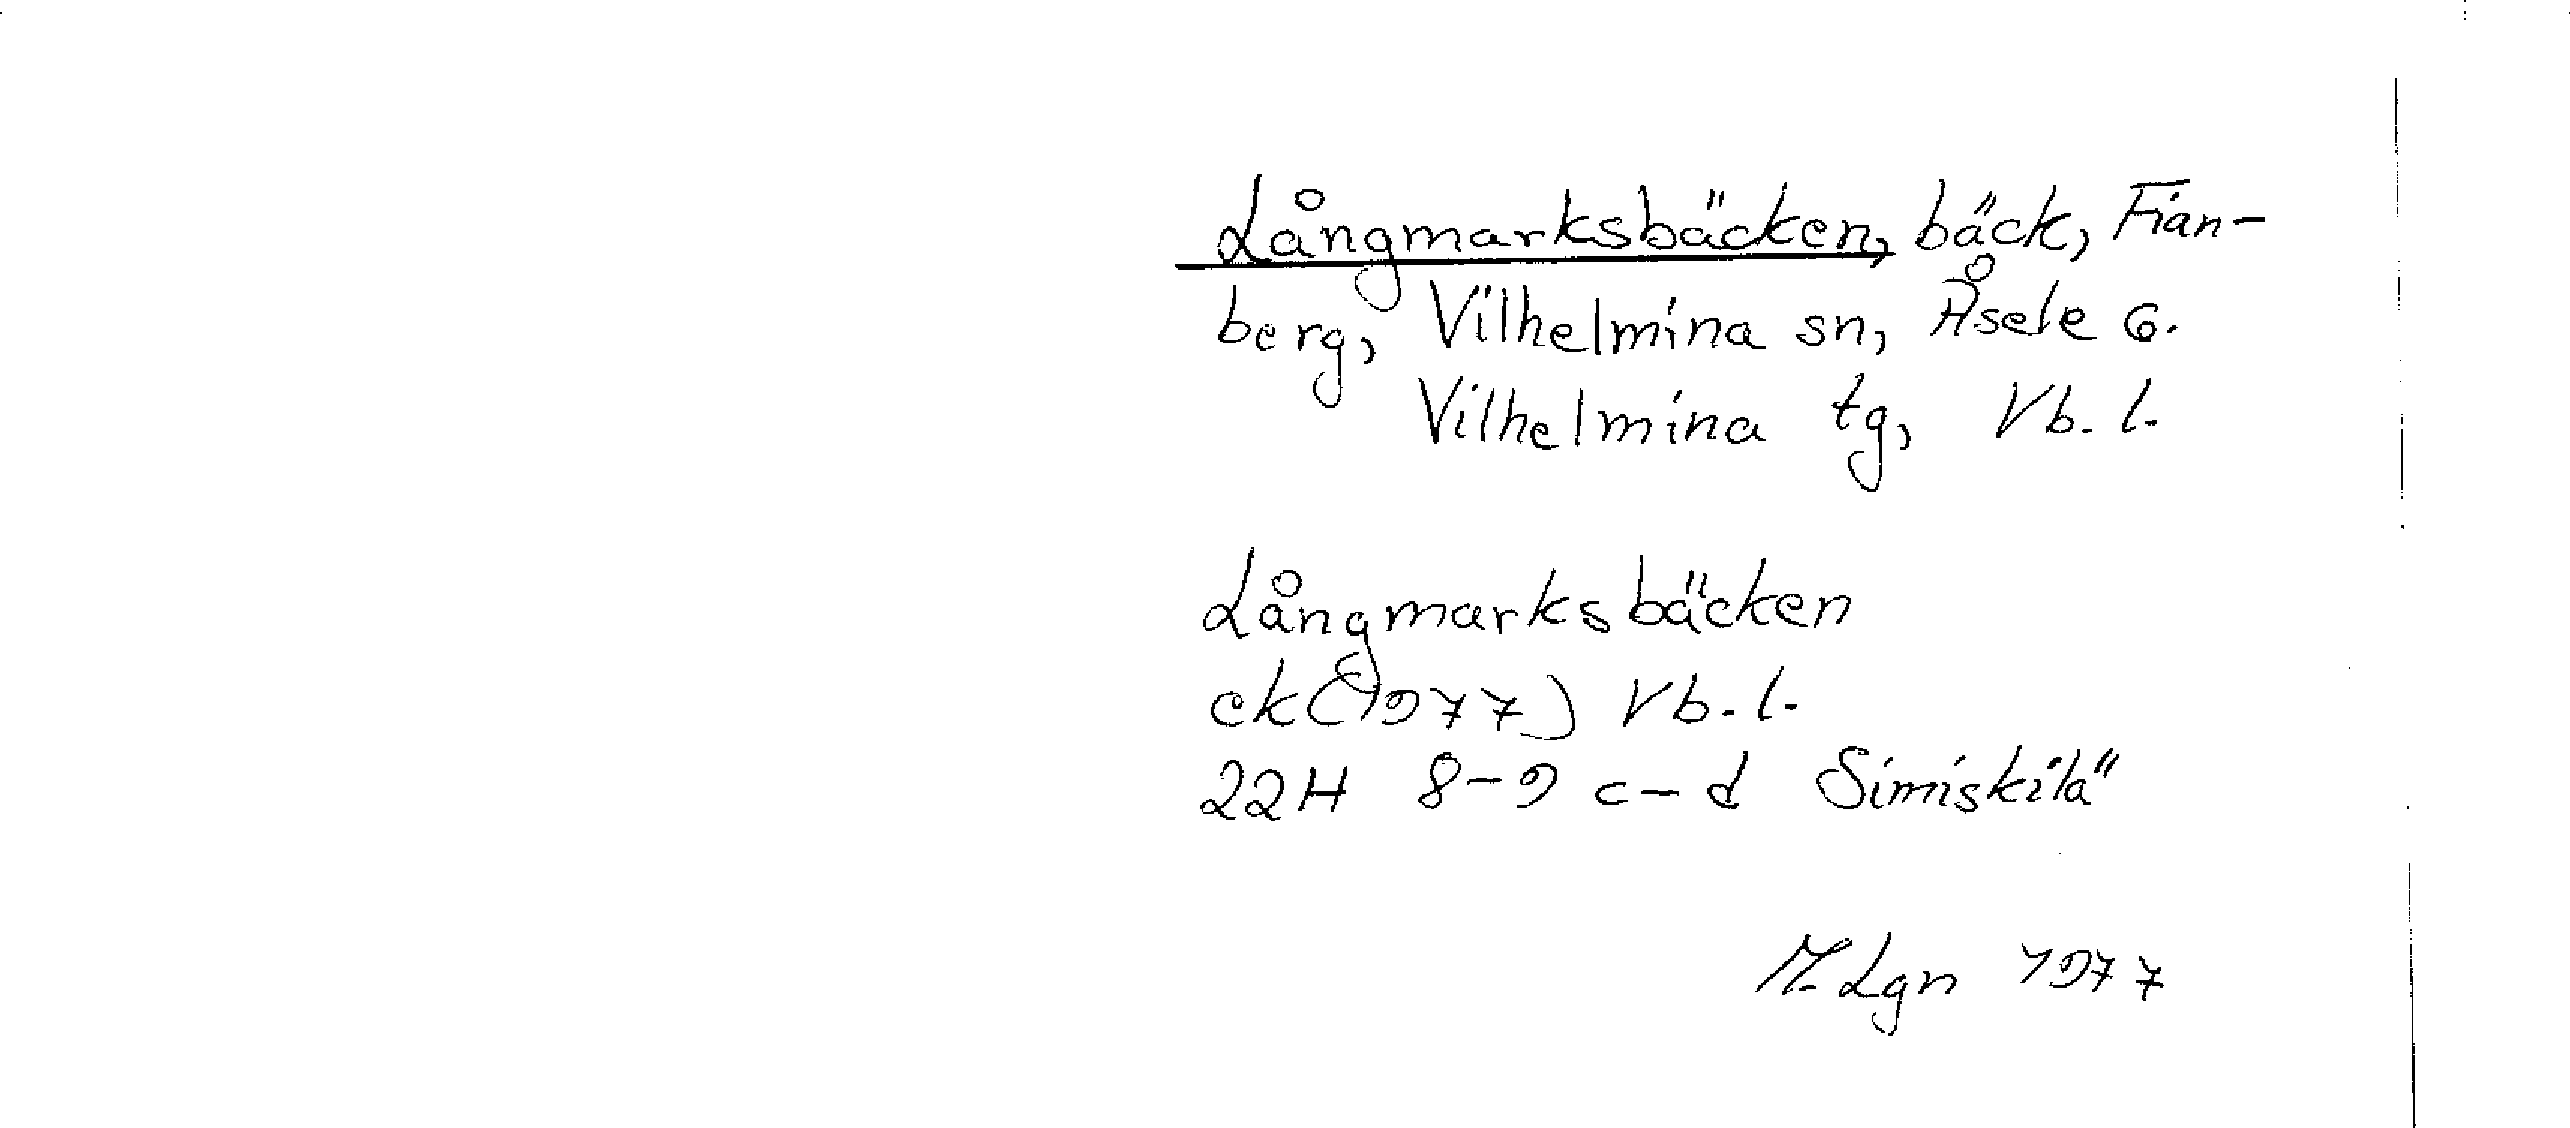 Långmarksbäcken, bäck, Fian-
berg, Vilhelmina sn, Åsele G.
Vilhelmina tg, Vb. l.
Långmarksbäcken
ek (1977) Vb. l.
22H 8-9 c-d Simiskilä
M. Lgn 1977